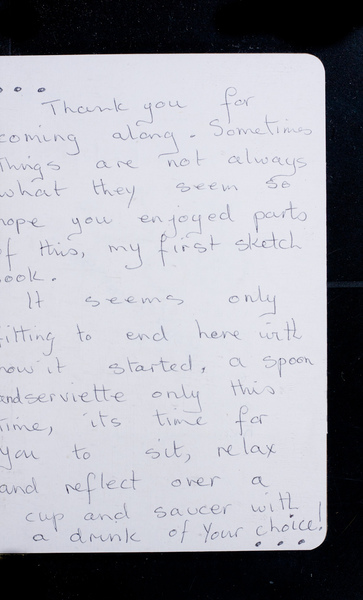 ...
Thank you for
coming along. Sometimes
things are not always
what they seem so
hope you enjoyed parts
of this, my first sketch
book.
It seems only
fitting to end here with
how it started, a spoon
and serviette only this
time, its time for
you to sit, relax
and reflect over a
cup and saucer with
a drink of your choice!
...